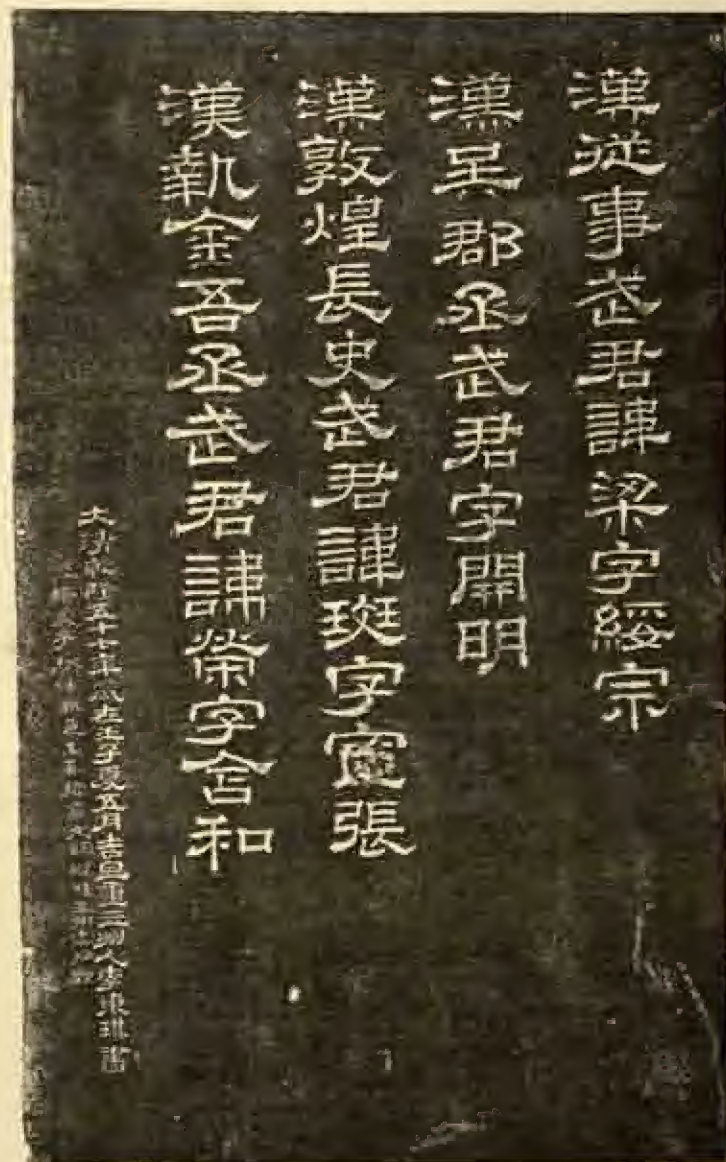 漢從事武君諱梁字綏宗
漢吳郡丞武君字開明
漢敦煌長史武君諱斑字宣張
漢執金吾丞武君諱榮字含和
大清乾隆五十七年歲在壬子夏五月吉旦 三 人李東琪書